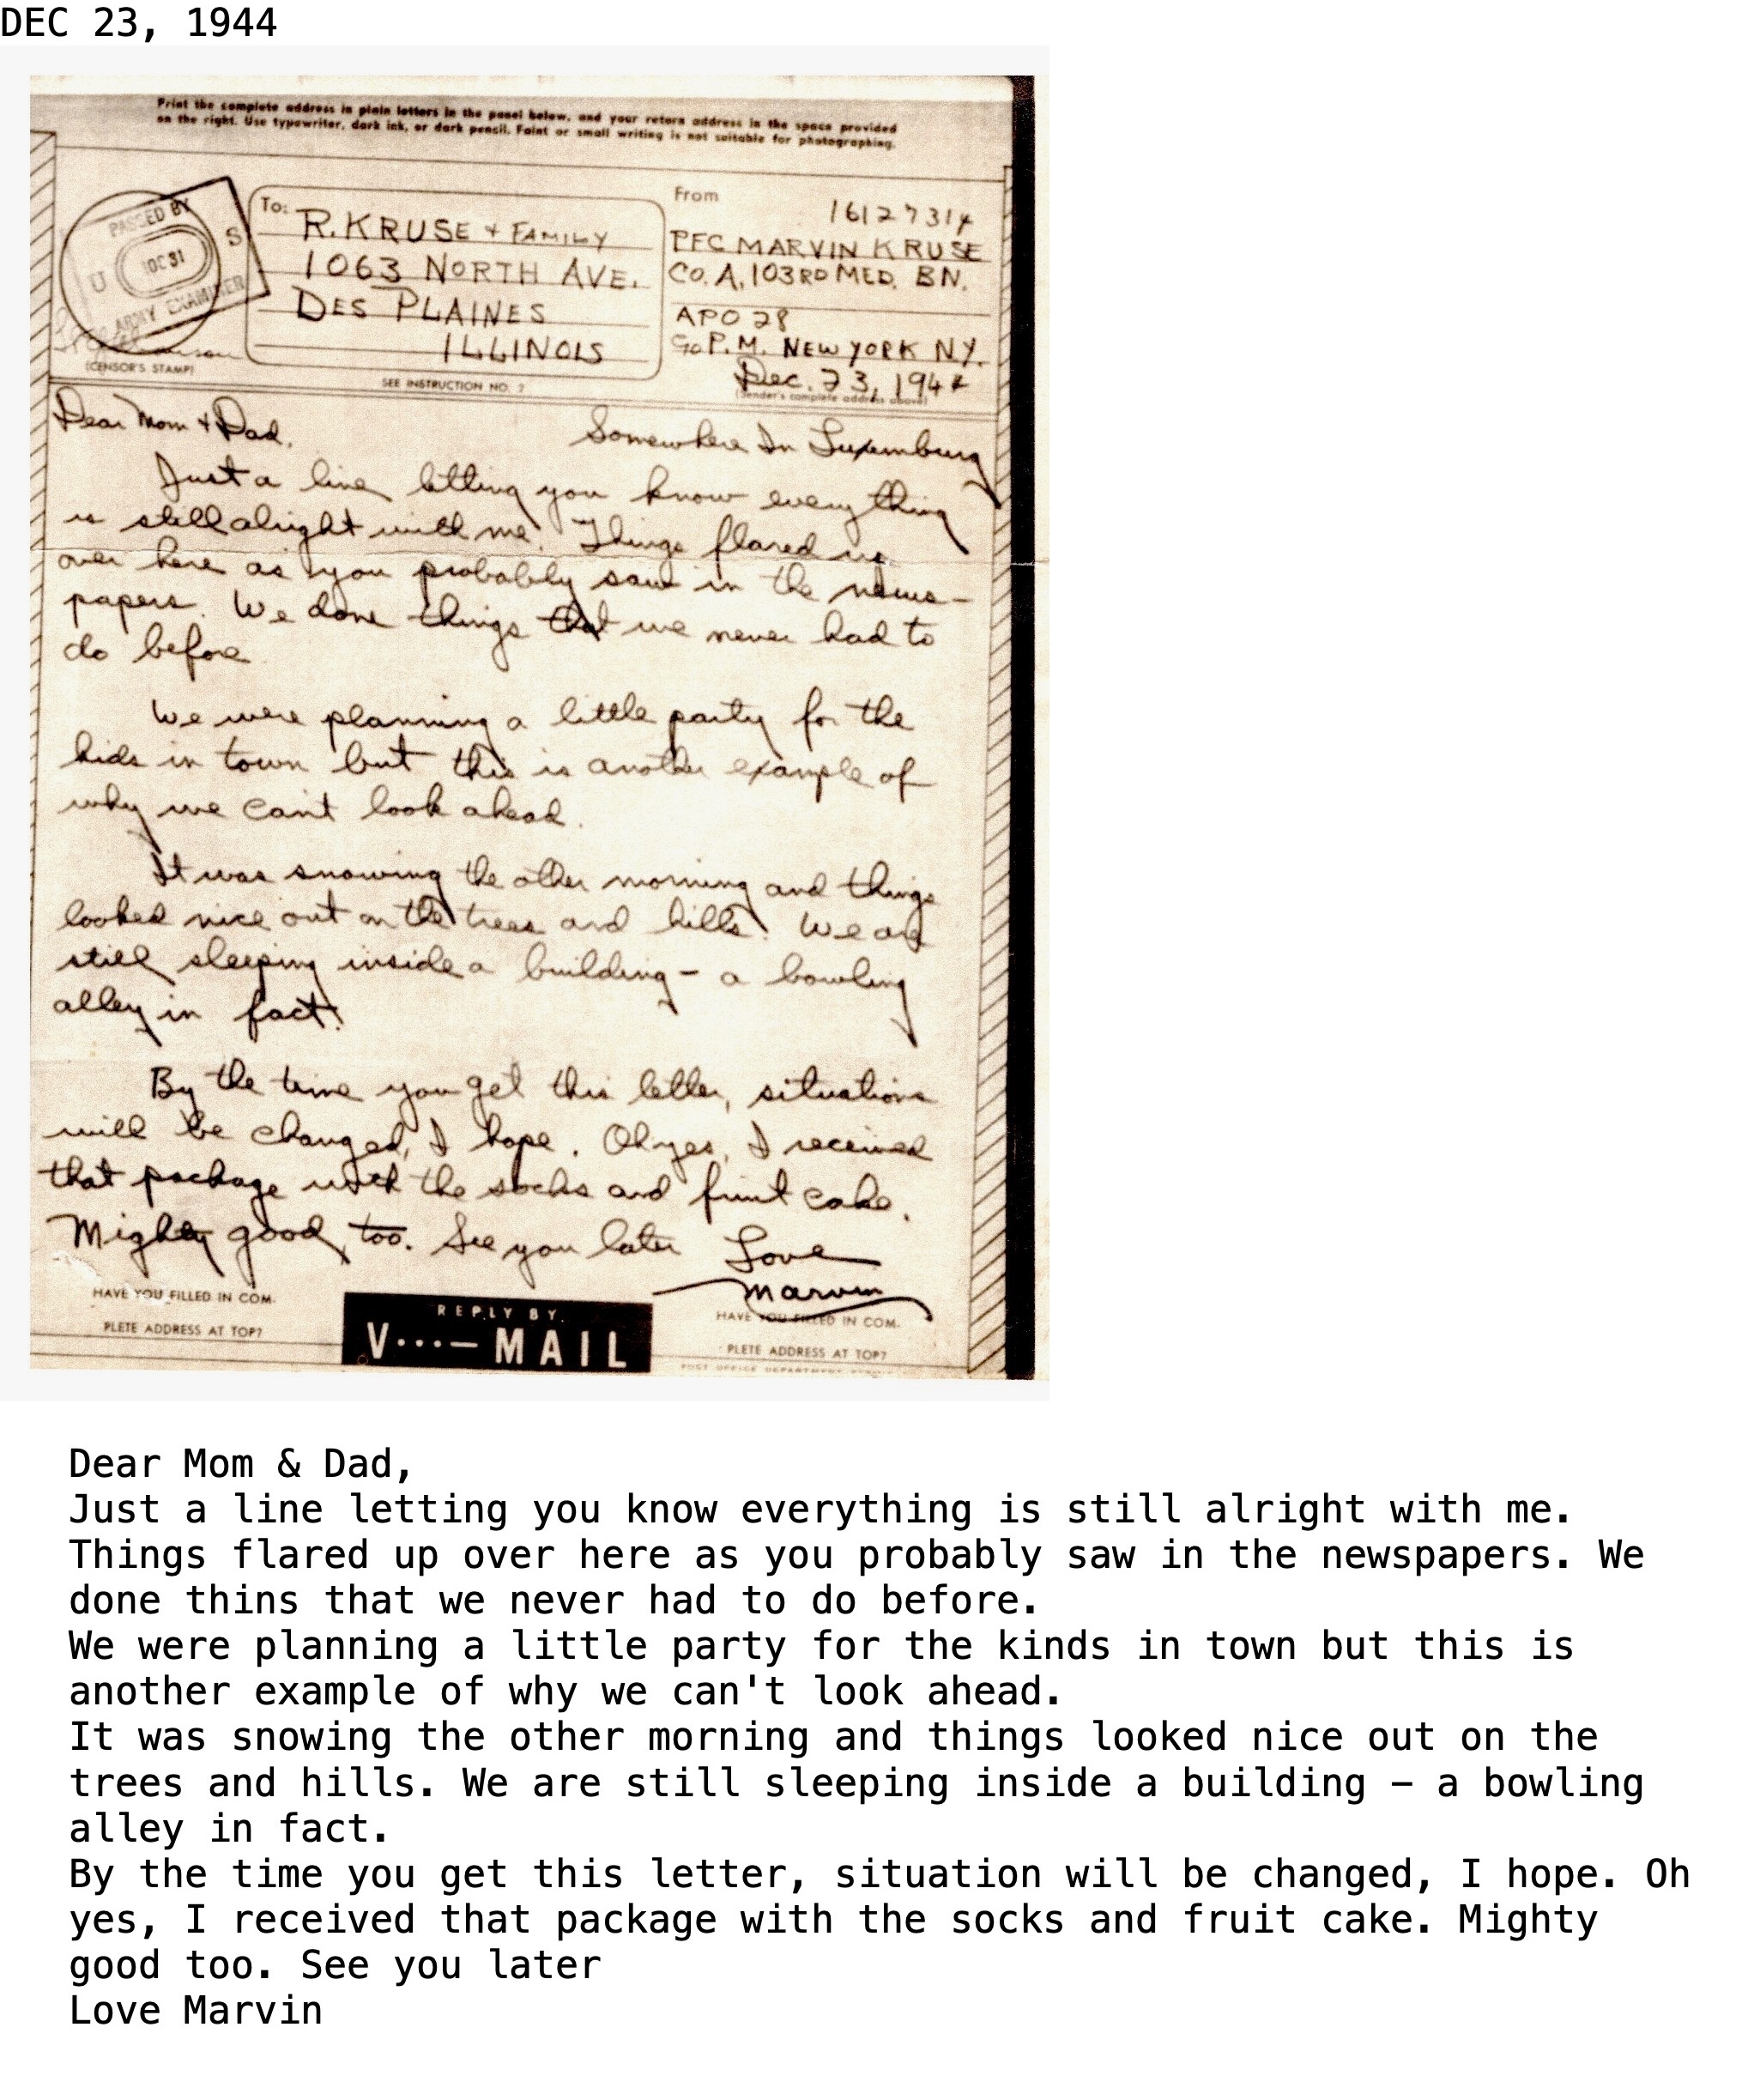 DEC 23, 1944
Print the complete address in plain letters in the panel below, and your return address in the space provided
on the right. Use typewriter, dark ink, or dark pencil. Faint or small writing is not suitable for photographing.
PASSED BY
U S
ARMY EXAMINER
(CENSOR'S STAMP)
To:
R. KRUSE + FAMILY
1063 NORTH AVE.
DES PLAINES
ILLINOIS
SEE INSTRUCTION NO. 2
From
16127314
PFC MARVIN KRUSE
CO. A, 103RD MED. BN.
APO 28
c/o P.M. NEW YORK NY.
Dec. 23, 1944
(Sender's complete address above)
Dear Mom + Dad,
Somewhere In Luxemburg
Just a line letting you know everything
is still alright with me. Things flared up
over here as you probably saw in the news-
papers. We done things that we never had to
do before
We were planning a little party for the
kids in town but this is another example of
why we can't look ahead.
It was snowing the other morning and things
looked nice out on the trees and hills. We are
still sleeping inside a building - a bowling
alley in fact.
By the time you get this letter, situations
will be changed, I hope. Oh yes, I received
that package with the socks and fruit cake.
Mighty good, too. See you later
Love
Marvin
HAVE YOU FILLED IN COM-
PLETE ADDRESS AT TOP?
REPLY BY
V···—MAIL
HAVE YOU FILLED IN COM-
PLETE ADDRESS AT TOP?
Dear Mom & Dad,
Just a line letting you know everything is still alright with me.
Things flared up over here as you probably saw in the newspapers. We
done thins that we never had to do before.
We were planning a little party for the kinds in town but this is
another example of why we can't look ahead.
It was snowing the other morning and things looked nice out on the
trees and hills. We are still sleeping inside a building – a bowling
alley in fact.
By the time you get this letter, situation will be changed, I hope. Oh
yes, I received that package with the socks and fruit cake. Mighty
good too. See you later
Love Marvin